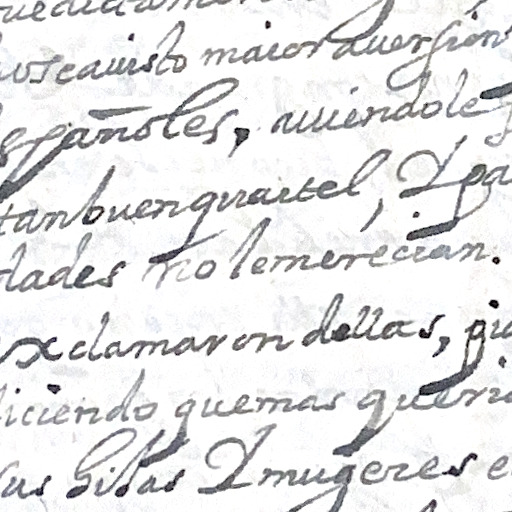 seavisto maior aversion
españoles, aviendoles
tan buen quartel, Y pa
dades no le merecian.
exclamaron dellas, 
diciendo que mas queria
sus hijas Y mugeres e